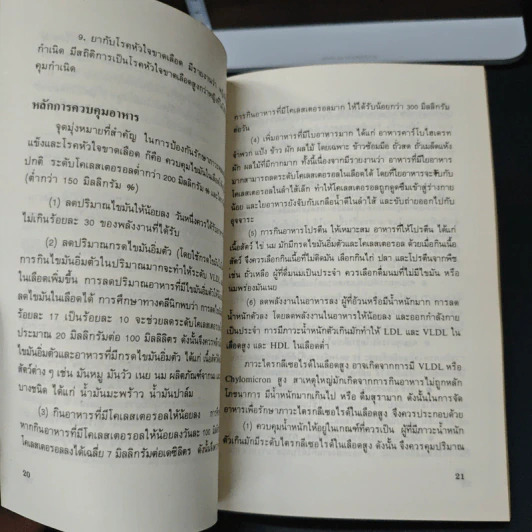 9. ยากับโรคหัวใจขาดเลือด มีรายงานว่า
กำเนิด มีสถิติการเป็นโรคหัวใจขาดเลือดสูงกว่า
คุมกำเนิด
หลักการควบคุมอาหาร
จุดมุ่งหมายที่สำคัญ ในการป้องกันรักษาภาวะ
แข็งและโรคหัวใจขาดเลือด ก็คือ ควบคุมไขมันในเลือด
ปกติ ระดับโคเลสเตอรอลต่ำกว่า 200 มิลลิกรัม %
(ต่ำกว่า 150 มิลลิกรัม %)
(1) ลดปริมาณไขมันให้น้อยลง วันหนึ่งควรได้
ไม่เกินร้อยละ 30 ของพลังงานที่ได้รับ
(2) ลดปริมาณกรดไขมันอิ่มตัว (โดยใช้กรดไขมัน
การกินไขมันอิ่มตัวในปริมาณมากจะทำให้ระดับ VLDL
ในเลือดเพิ่มขึ้น การลดปริมาณอาหารที่มีไขมันอิ่มตัว
ลดไขมันในเลือดได้ การศึกษาทางคลินิกพบว่า การลด
ร้อยละ 17 เป็นร้อยละ 10 จะช่วยลดระดับโคเลสเตอรอล
ประมาณ 20 มิลลิกรัมต่อ 100 มิลลิลิตร ดังนั้นจึงควร
ไขมันอิ่มตัวและอาหารที่มีกรดไขมันอิ่มตัว ได้แก่
สัตว์ต่างๆ เช่น มันหมู มันวัว เนย นม ผลิตภัณฑ์จาก
บางชนิด ได้แก่ น้ำมันมะพร้าว น้ำมันปาล์ม
(3) กินอาหารที่มีโคเลสเตอรอลให้น้อยลง
หากกินอาหารที่มีโคเลสเตอรอลให้น้อยลงวันละ 100
โคเลสเตอรอลลงได้เฉลี่ย 7 มิลลิกรัมต่อเดซิลิตร ดังนั้น
20
การกินอาหารที่มีโคเลสเตอรอลมาก ให้ได้รับน้อยกว่า 300 มิลลิกรัม
ต่อวัน
(4) เพิ่มอาหารที่มีใยอาหารมาก ได้แก่ อาหารคาร์โบไฮเดรท
จำพวก แป้ง ข้าว ผัก ผลไม้ โดยเฉพาะ ข้าวซ้อมมือ ถั่วสด ถั่วเมล็ดแห้ง
ผัก ผลไม้ที่มีกากมาก ทั้งนี้เนื่องจากมีรายงานว่า อาหารที่มีใยอาหาร
มากสามารถลดระดับโคเลสเตอรอลในเลือดได้ โดยที่ใยอาหารจะจับกับ
โคเลสเตอรอลในลำไส้เล็ก ทำให้โคเลสเตอรอลถูกดูดซึมเข้าสู่ร่างกาย
น้อย และใยอาหารยังจับกับเกลือน้ำดีในลำไส้ และขับถ่ายออกไปกับ
อุจจาระ
(5) กินอาหารโปรตีน ให้เหมาะสม อาหารที่ให้โปรตีน ได้แก่
เนื้อสัตว์ ไข่ นม มักมีกรดไขมันอิ่มตัวและโคเลสเตอรอล ด้วยเมื่อกินเนื้อ
สัตว์ จึงควรเลือกกินเนื้อที่ไม่ติดมัน เลือกกินไก่ ปลา และโปรตีนจากพืช
เช่น ถั่วเหลือง ผู้ที่ดื่มนมเป็นประจำ ควรเลือกดื่มนมที่ไม่มีไขมัน หรือ
นมพร่องมันเนย
(6) ลดพลังงานในอาหารลง ผู้ที่อ้วนหรือมีน้ำหนักมาก การลด
น้ำหนักตัวลง โดยลดพลังงานในอาหารให้น้อยลง และออกกำลังกาย
เป็นประจำ การมีภาวะน้ำหนักตัวเกินมักทำให้ LDL และ VLDL ใน
เลือดสูง และ HDL ในเลือดต่ำ
ภาวะไตรกลีเซอไรด์ในเลือดสูง อาจเกิดจากการมี VLDL หรือ
Chylomicron สูง สาเหตุใหญ่มักเกิดจากการกินอาหารไม่ถูกหลัก
โภชนาการ มีน้ำหนักมากเกินไป หรือ ดื่มสุรามาก ดังนั้นในการจัด
อาหารเพื่อรักษาภาวะไตรกลีเซอไรด์ในเลือดสูง จึงควรประกอบด้วย
(1) ควบคุมน้ำหนักให้อยู่ในเกณฑ์ที่ควรเป็น ผู้ที่มีภาวะน้ำหนัก
ตัวเกินมักมีระดับไตรกลีเซอไรด์ในเลือดสูง ดังนั้น จึงควรคุมปริมาณ
21